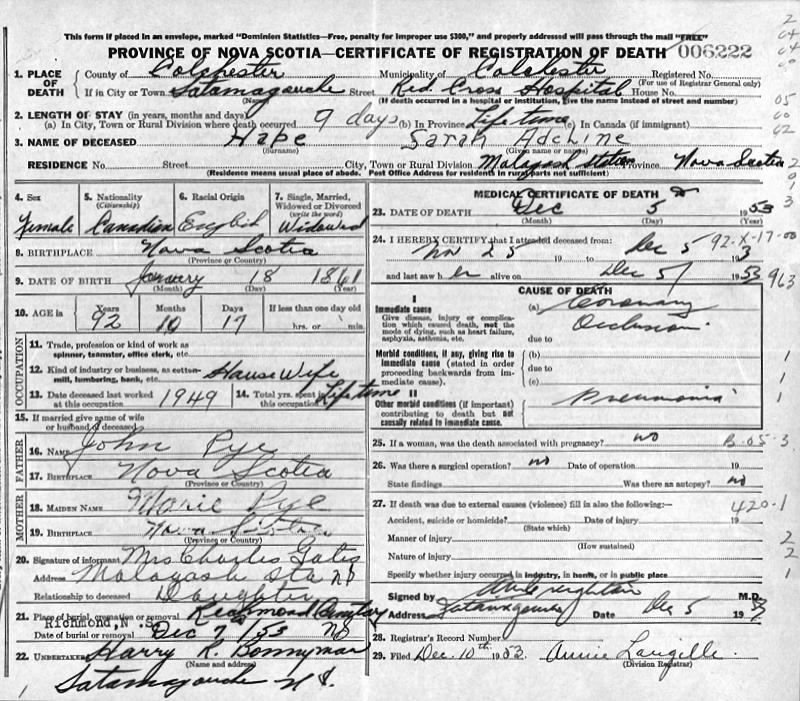 This form if placed in an envelope, marked "Dominion Statistics—Free, penalty for improper use $300," and properly addressed will pass through the mail "FREE"
PROVINCE OF NOVA SCOTIA—CERTIFICATE OF REGISTRATION OF DEATH 006222
1. PLACE OF DEATH County of Colchester Municipality of Colchester Registered No.
(For use of Registrar General only)
If in City or Town Tatamagouche Street Red Cross Hospital House No.
(Name) (If death occurred in a hospital or institution, give the name instead of street and number)
2. LENGTH OF STAY (in years, months and days)
(a) In City, Town or Rural Division where death occurred 9 days (b) In Province Life time (c) In Canada (if immigrant)
3. NAME OF DECEASED Hape Sarah Adeline
(Surname) (Given name or names)
RESIDENCE No. Street City, Town or Rural Division Malagash Station Province Nova Scotia
(Residence means usual place of abode. Post Office Address for residents in rural parts not sufficient)
4. Sex Female
5. Nationality (Citizenship) Canadian
6. Racial Origin English
7. Single, Married, Widowed or Divorced (write the word) Widowed
8. BIRTHPLACE Nova Scotia
(Province or Country)
9. DATE OF BIRTH January 18 1861
(Month) (Day) (Year)
10. AGE in Years Months Days If less than one day old
92 10 17 hrs. or min.
OCCUPATION
11. Trade, profession or kind of work as spinner, teamster, office clerk, etc.
12. Kind of industry or business, as cotton-mill, lumbering, bank, etc. House Wife
13. Date deceased last worked at this occupation 1949 14. Total yrs. spent in this occupation Life time
15. If married give name of wife or husband of deceased
FATHER
16. Name John Pye
17. Birthplace Nova Scotia
(Province or Country)
MOTHER
18. Maiden Name Marie Pye
19. Birthplace Nova Scotia
(Province or Country)
20. Signature of informant Mrs Charles Gates
Address Malagash Sta NS
Relationship to deceased Daughter
21. Place of burial, cremation or removal Richmond Cemetery
Richmond, N. S.
Date of burial or removal Dec 7 /53 NS
22. Undertaker Harry R. Bonnyman
(Name and address)
Tatamagouche N S.
MEDICAL CERTIFICATE OF DEATH
23. DATE OF DEATH Dec 5 1953
(Month) (Day) (Year)
24. I HEREBY CERTIFY that I attended deceased from:
Nov 25 19 to Dec 5 1953
92-X-17-00
and last saw her alive on Dec 5 1953
963
CAUSE OF DEATH
I
Immediate cause
Give disease, injury or complication which caused death, not the mode of dying, such as heart failure, asphyxia, asthenia, etc.
(a) Coronary Occlusion
due to
Morbid conditions, if any, giving rise to immediate cause (stated in order proceeding backwards from immediate cause).
(b)
due to
(c)
II
Other morbid conditions (if important) contributing to death but not causally related to immediate cause.
Pneumonia
25. If a woman, was the death associated with pregnancy? no B-05-3
26. Was there a surgical operation? no Date of operation 19
State findings Was there an autopsy? no
27. If death was due to external causes (violence) fill in also the following:— 420-1
Accident, suicide or homicide? Date of injury 19
(State which)
Manner of injury
(How sustained)
Nature of injury
Specify whether injury occurred in industry, in home, or in public place
Signed by M.D.
Address Tatamagouche Date Dec 5 1953
28. Registrar's Record Number
29. Filed Dec. 10th 1953 Annie Langille
(Division Registrar)